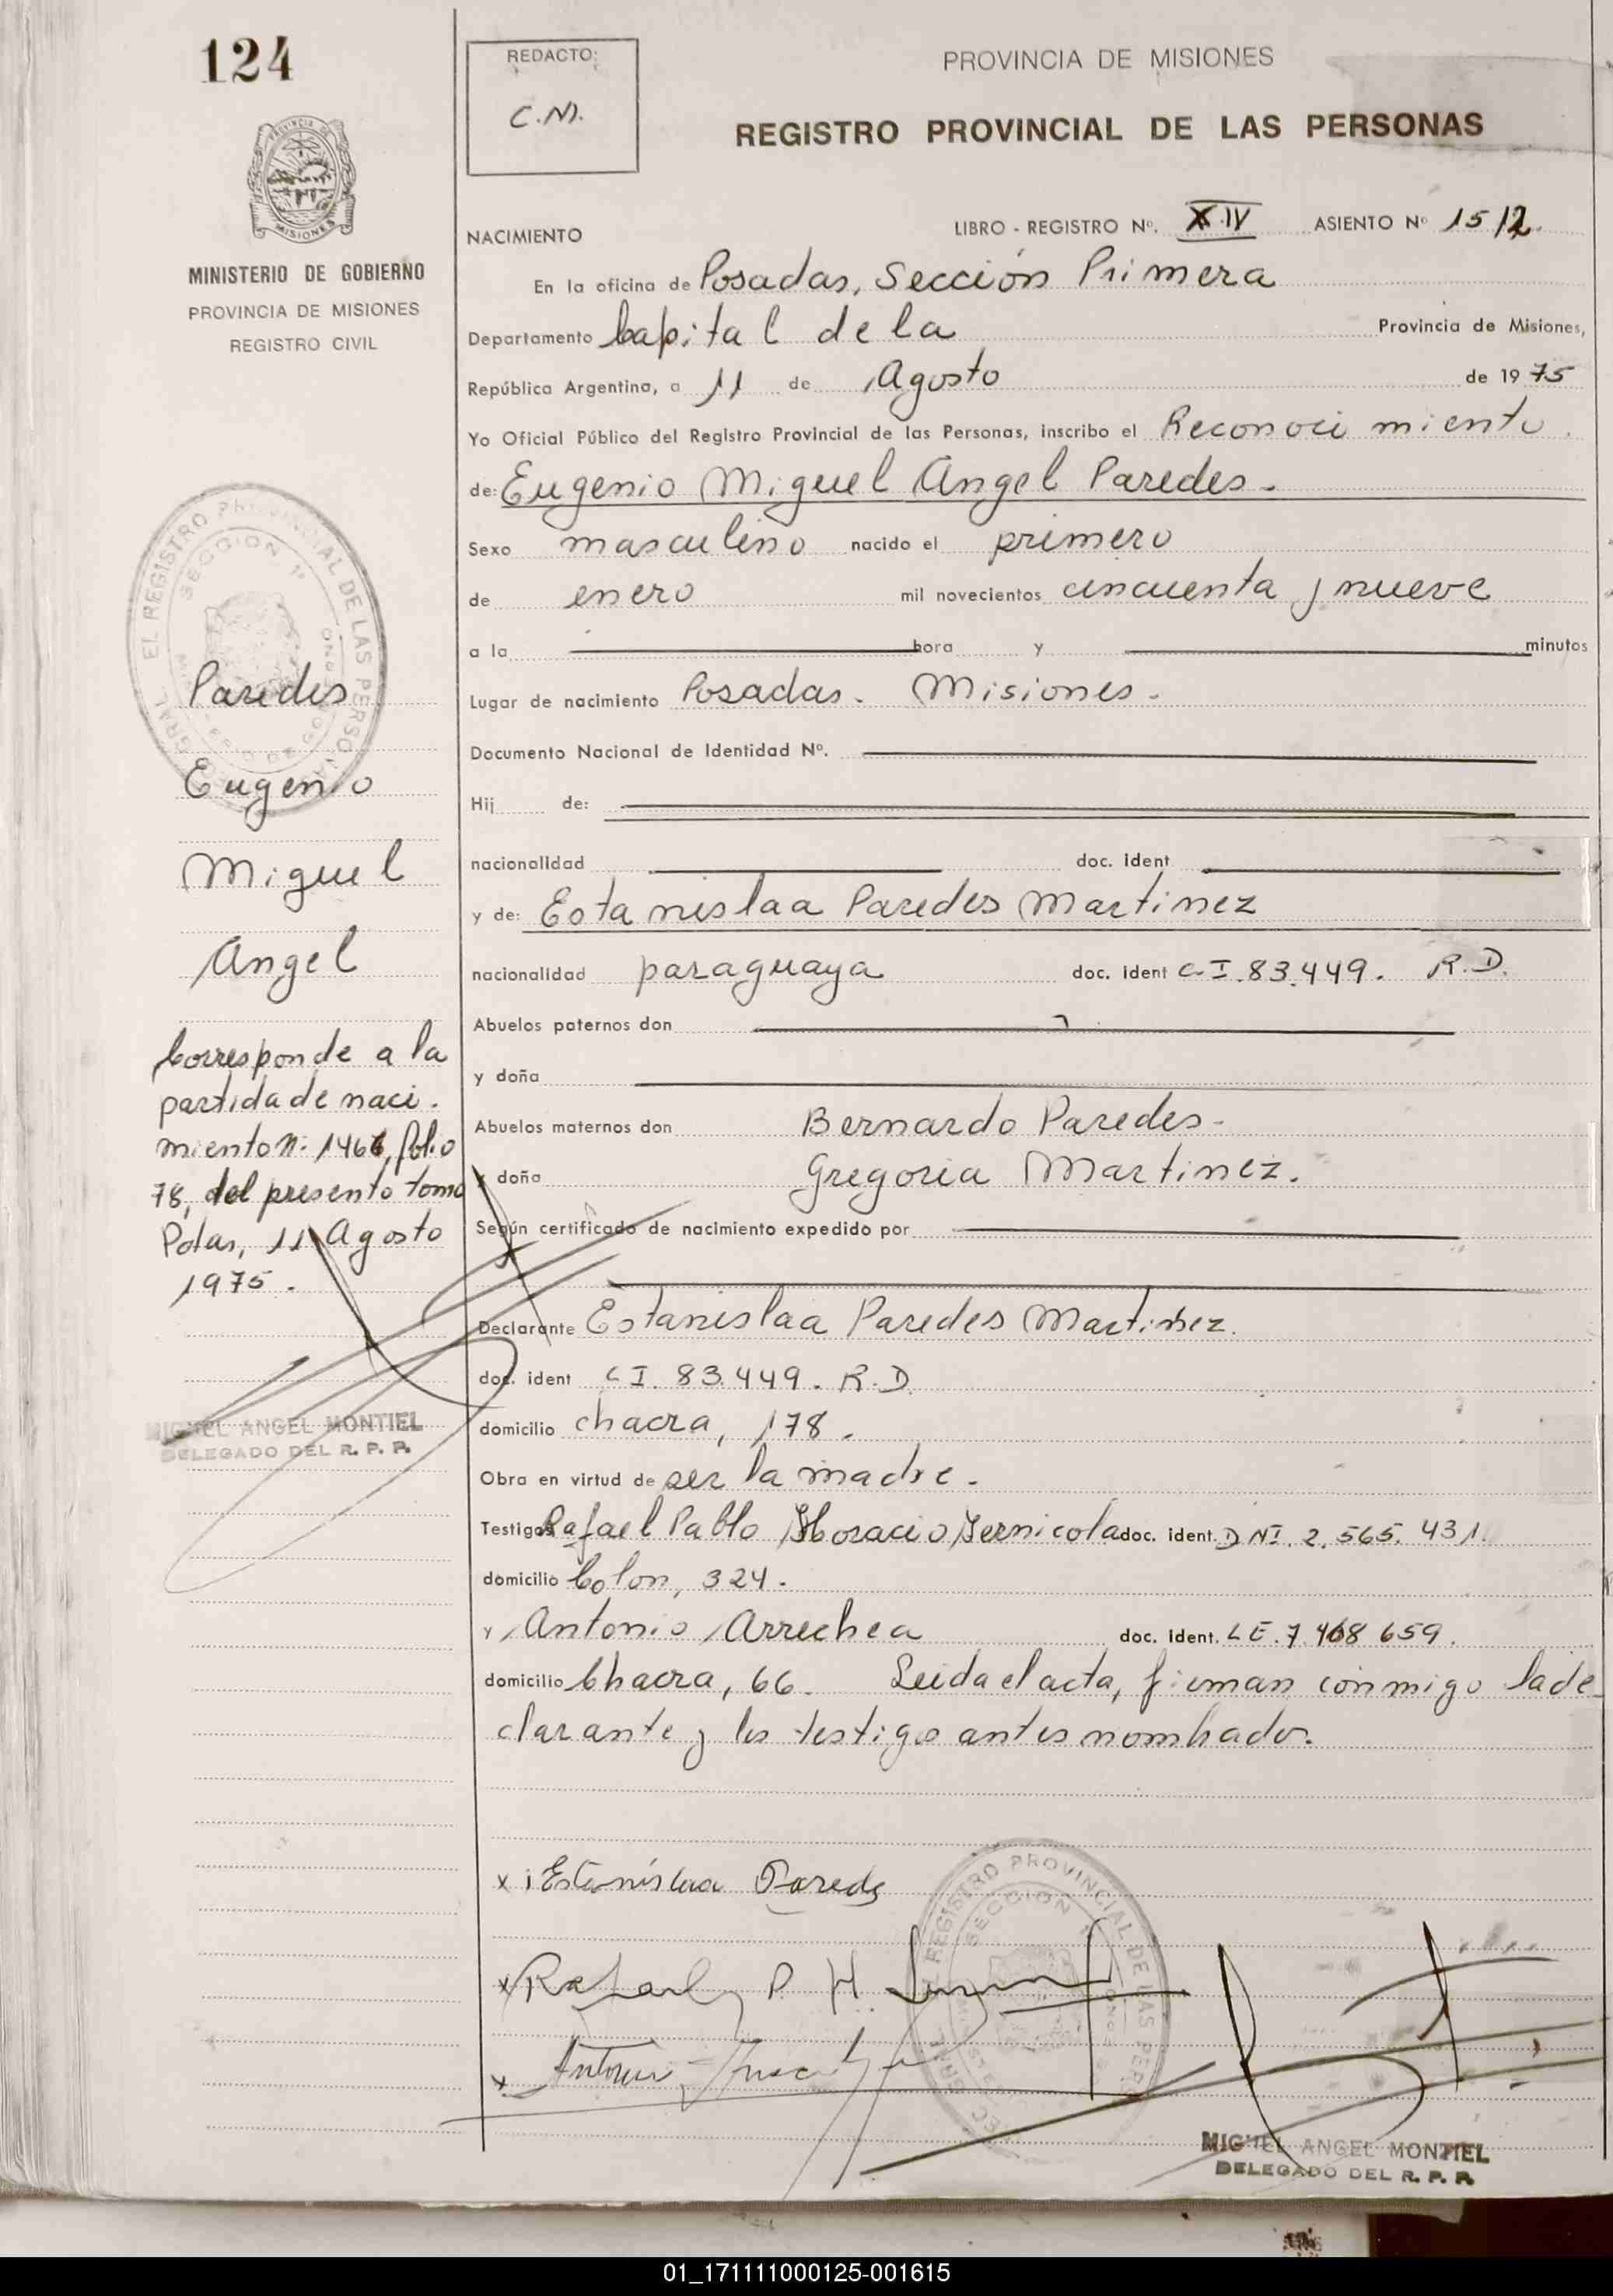 124
REDACTO:
C.M.
PROVINCIA DE MISIONES
REGISTRO PROVINCIAL DE LAS PERSONAS
MINISTERIO DE GOBIERNO
PROVINCIA DE MISIONES
REGISTRO CIVIL
NACIMIENTO LIBRO - REGISTRO Nº. XIV ASIENTO Nº 1512.
En la oficina de Posadas, Sección Primera
Departamento Capital de la Provincia de Misiones,
República Argentina, a 11 de Agosto de 1975
Yo Oficial Público del Registro Provincial de las Personas, inscribo el Reconocimiento.
de: Eugenio Miguel Angel Paredes.
Sexo masculino nacido el primero
de enero mil novecientos cincuenta y nueve
a la hora y minutos
Lugar de nacimiento Posadas. Misiones.
Documento Nacional de Identidad Nº.
Hij de:
nacionalidad doc. ident
y de: Estanislaa Paredes Martinez
nacionalidad paraguaya doc. ident C.I. 83.449. R.D.
Abuelos paternos don
y doña
Abuelos maternos don Bernardo Paredes.
y doña Gregoria Martinez.
Según certificado de nacimiento expedido por
Declarante Estanislaa Paredes Martinez.
doc. ident C I. 83.449. R.D.
domicilio chacra, 178.
Obra en virtud de ser la madre.
Testigos Rafael Pablo Horacio Sernicola doc. ident. D NI. 2.565.431.
domicilio Colon, 324.
y Antonio Arrechea doc. ident. L E. 7.468 659.
domicilio Chacra, 66. Leida el acta, firman conmigo la de
clarante y los testigos antes nombrados.
Paredes
Eugenio
Miguel
Angel
Corresponde a la
partida de naci.
miento n: 1466, folio
78, del presente tomo
Pdas, 11 Agosto
1975.
MIGUEL ANGEL MONTIEL
DELEGADO DEL R. P. P.
x Estanislaa Paredes
x Rafael P. H.
x Antonio
MIGUEL ANGEL MONTIEL
DELEGADO DEL R. P. P.
01_171111000125-001615